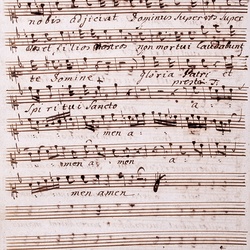 nobis adjiciat Dominus super vos super
vos et filios vestros non mortui laudabunt
te Domine Gloria Patri et
presto
Spiritui Sancto a
men a
men a men a
men amen